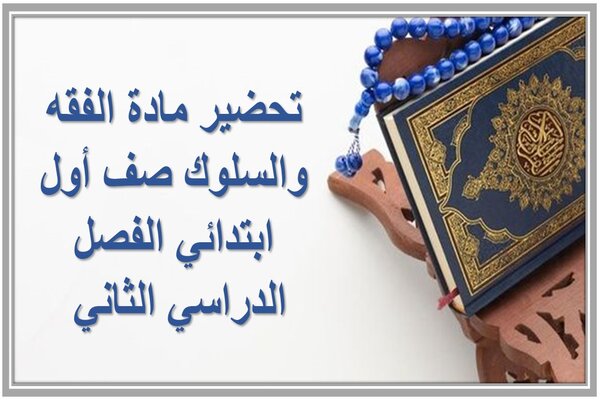 تحضير مادة الفقه
والسلوك صف أول
ابتدائي الفصل
الدراسي الثاني